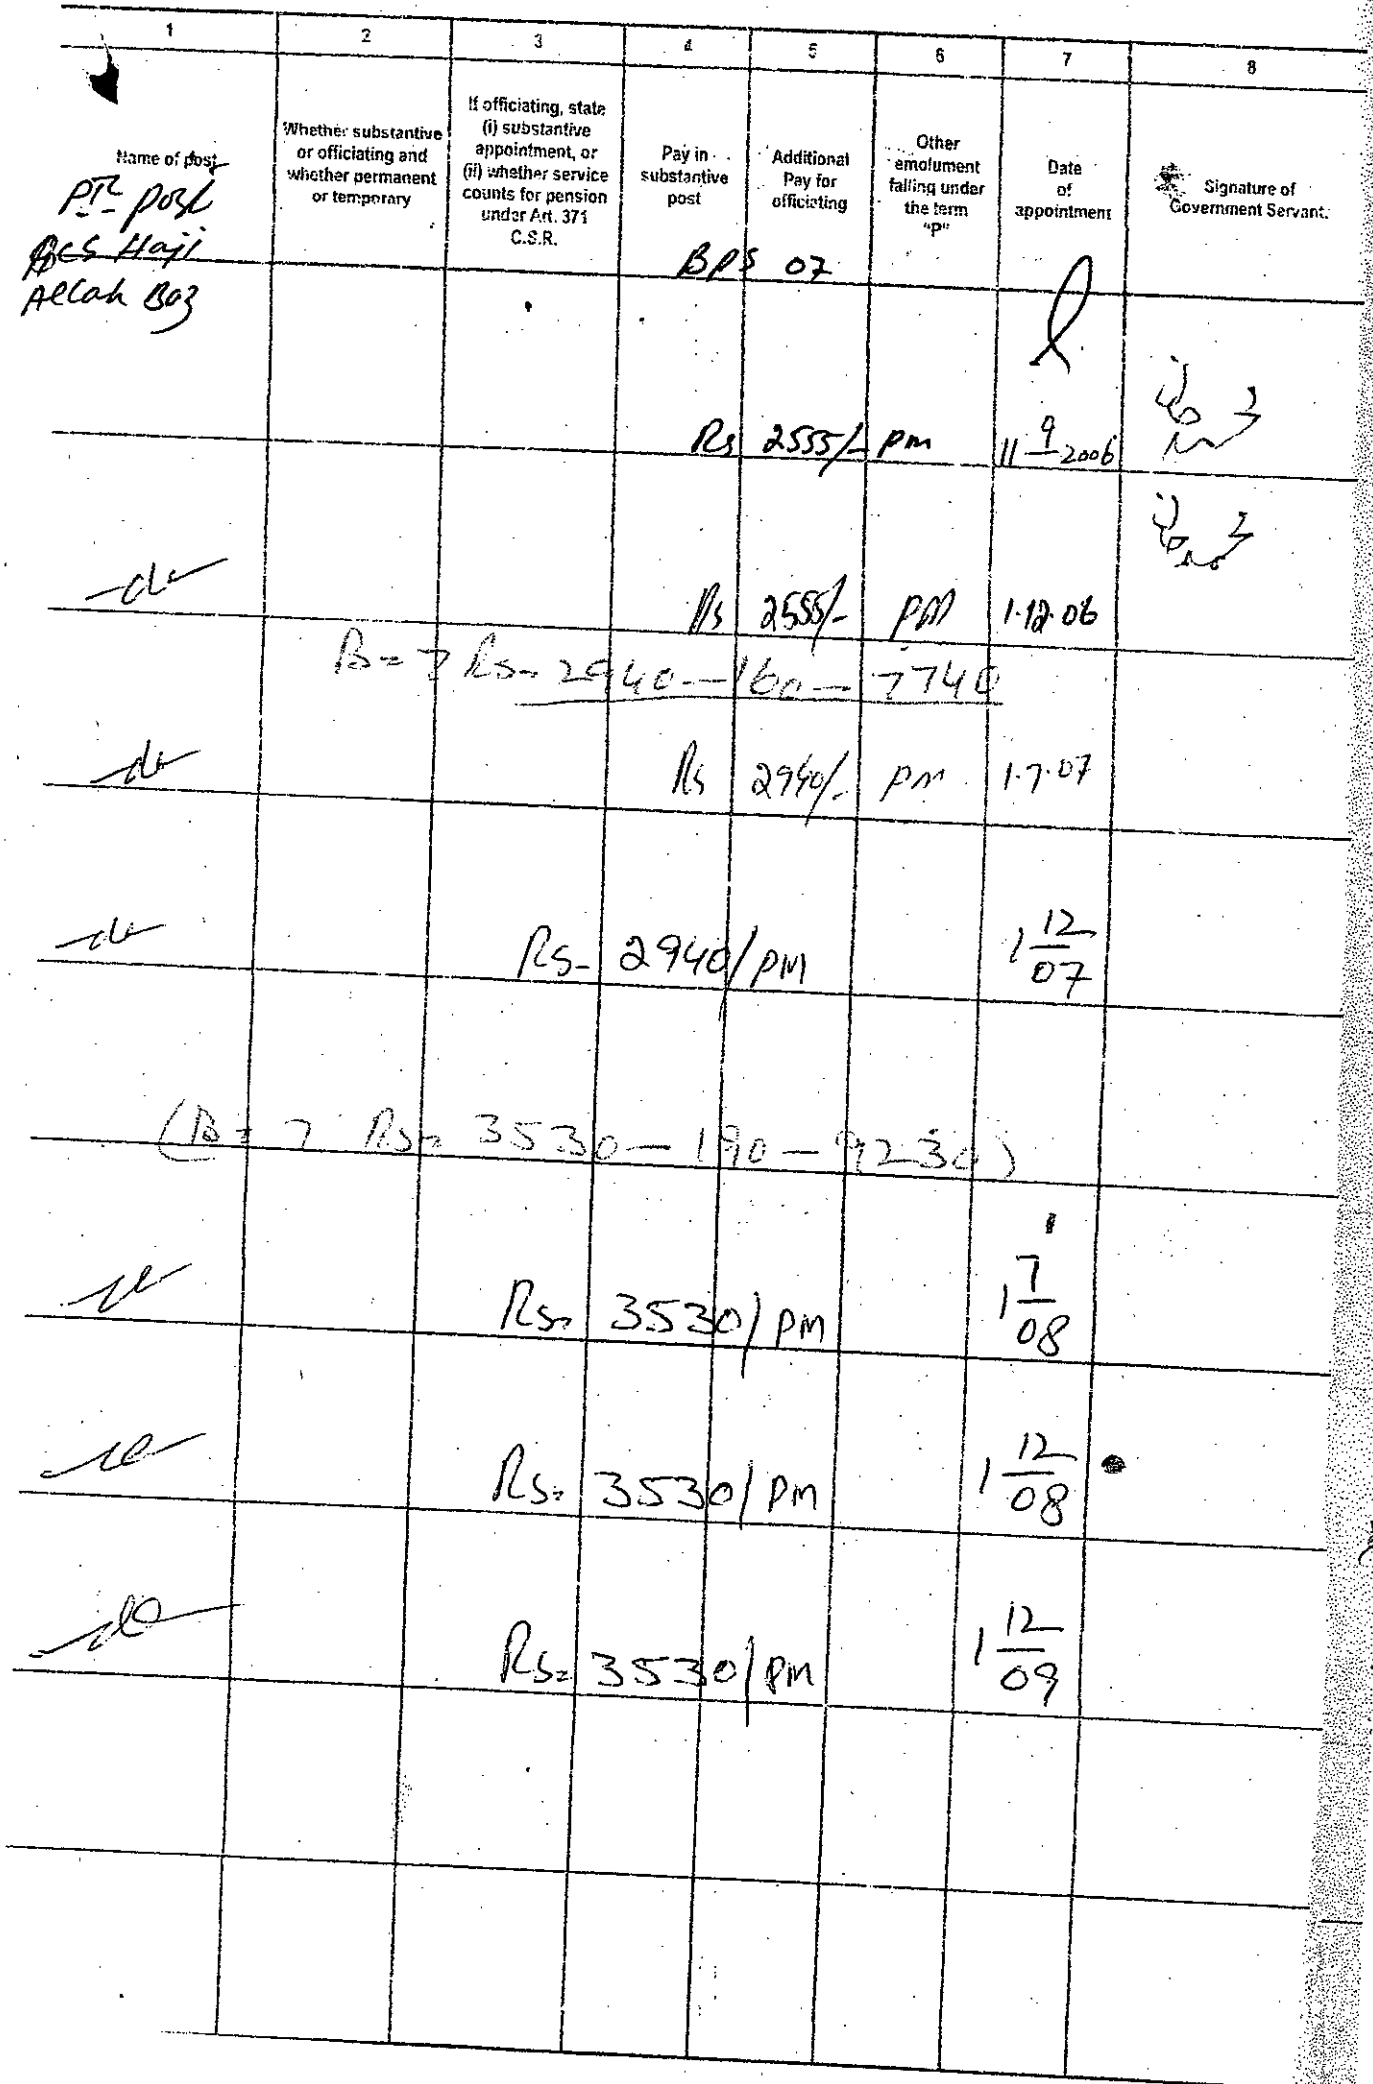 1 2 3 4 5 6 7 8
Name of post
Whether substantive or officiating and whether permanent or temporary
If officiating, state (i) substantive appointment, or (ii) whether service counts for pension under Art. 371 C.S.R.
Pay in substantive post
Additional Pay for officiating
Other emolument falling under the term "P"
Date of appointment
Signature of Government Servant.
post
Haji
Allah Baz
BPS 07
Rs 2555/- pm 11 9 2006
-do- Rs 2555/- pm 1.12.06
B=7 Rs= 2940—160—7740
-do- Rs 2940/- pm 1.7.07
-do- Rs- 2940/pm 1 12/07
(B=7 Rs= 3530—190—9230)
-do- Rs= 3530/pm 1 7/08
-do- Rs= 3530/pm 1 12/08
-do- Rs= 3530/pm 1 12/09